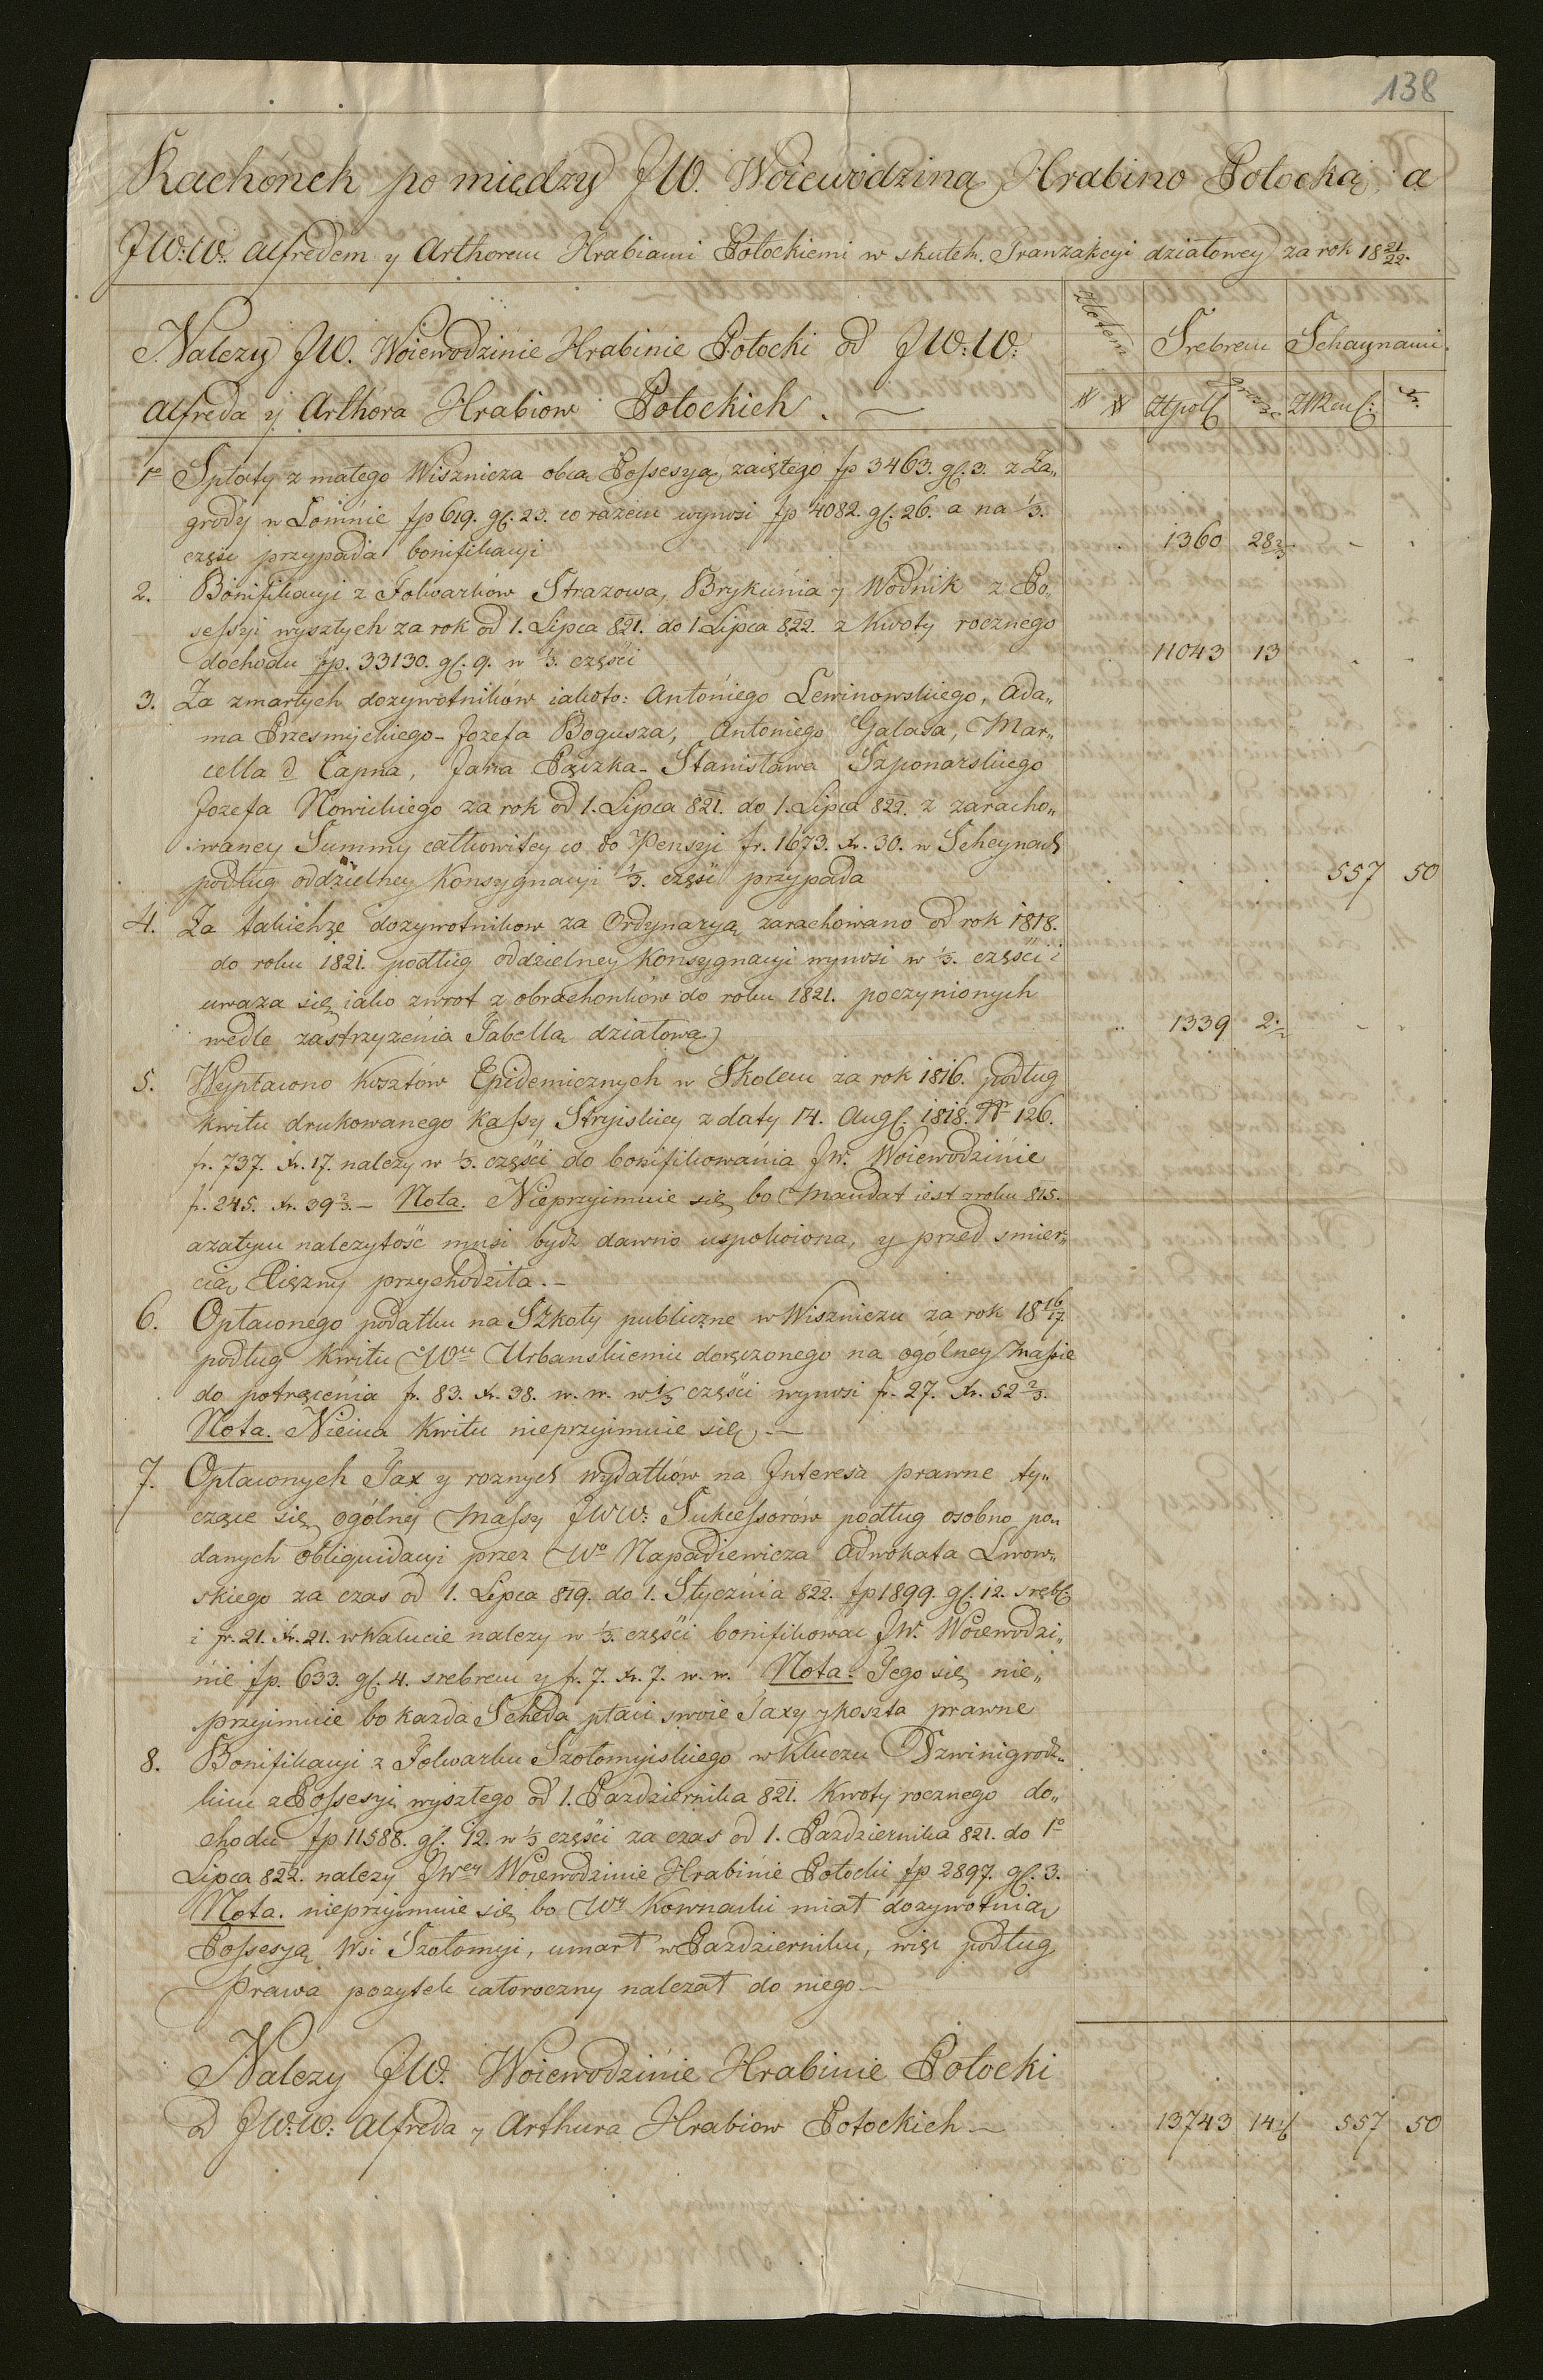 138
Rachónek pomiędzy JW. Woiewodziną Hrabino Potocką, a
JW:W: Alfredem y Arthorem Hrabiami Potockiemi w skutek Tranzakcyi działowey za rok 18 21/22.
Złotem Srebrem Schaynami
Należy JW. Woiewodzinie Hrabinie Potocki od JW:W:
Alfreda y Arthóra Hrabiow Potockich. —
# # Złpol: grosze ZłReń: xr.
1o Spłaty z małego Wisznicza obcą Possesyą zaiętego fp 3463. gl. 3. z Za„
grody w Łomnie fp 619. gl. 23. co razem wynosi fp 4082. gl. 26. a na 1/3.
część przypada bonifikacyi 1360 28 2/3 - -
2. Bonifikacyi z Folwarków Strazowa, Brykunia y Wodnik z Po„
sessyi wyszłych za rok od 1. Lipca 821. do 1 Lipca 822. z Kwoty rocznego
dochodu fp. 33130. gl. 9. w 1/3. części 11043 13 - -
3. Za zmarłych dozywotników iakoto: Antoniego Lewinowskiego, Ada„
ma Przesmyckiego - Jozefa Bogusza, Antoniego Galasa, Mar„
cella d Capna, Jana Pączka - Stanisława Szponarskiego
Jozefa Nowickiego za rok od 1. Lipca 821. do 1. Lipca 822. z zaracho„
waney Summy całkowitey co do Pensyi fr. 1673. xr. 30. w Scheynach
podług oddzielney Konsygnacyi 1/3. część przypada . . . 557 50
4. Za takichże dozywotnikow za Ordynaryą zarachowano od rok 1818.
do roku 1821. podług oddzielney Konsygnacyi wynosi w 1/3. części i
uwaza się iako zwrot z obrachonków do roku 1821. poczynionych
wedle zastrzyżenia Tabellą działową 1339 2 1/2 - -
5. Wypłacono Kosztów Epidemicznych w Skolem za rok 1816. podług
kwitu drukowanego Kassy Stryiskiey z daty 14. Augs. 1818. Nr 126.
fr. 737. xr. 17. nalezy w 1/3. części do bonifikowania Jw. Woiewodzinie
fr. 245. xr. 39 2/3 — Nota. Nieprzyimuie się bo Mandat iest z roku 815.
azatym nalezytość musi bydź dawno uspokoiona, y przed smier„
cią Xięzny przychodziła. —
6. Opłaconego podatku na Szkoły publiczne w Wiszniczu za rok 18 16/17
podług Kwitu Wu Urbanskiemu doręczonego na ogólney Massie
do potrącenia fr. 83. xr. 38. w. w. w 1/3 części wynosi fr. 27. xr. 52 2/3.
Nota. Niema Kwitu nieprzyimuie się. —
7. Opłaconych Tax y roznych wydatków na Interesa prawne ty„
czące się ogólney Massy JWW: Sukcessorów podług osobno po„
danych obliquidacyi przez Wo Napadiewicza Adwokata Lwow„
skiego za czas od 1. Lipca 819. do 1. Stycznia 822. fp 1899. gl. 12. srebl.
i fr. 21. xr. 21. w Walucie nalezy w 1/3. części bonifikować Jw. Woiewodzi„
nie fp. 633. gl. 4. srebrem y fr. 7. xr. 7. w. w. Nota. Tego się nie„
przyimuie bo kazda Scheda płaci swoie Taxy y koszta prawne
8. Bonifikacyi z Folwarku Szołomyiskiego w Kluczu Dzwinigrodz„
kim z Possesyi wyszłego od 1. Pazdziernika 821. Kwoty rocznego do„
chodu fp 11588. gl. 12. w 1/3 części za czas od 1. Pazdziernika 821. do 1o
Lipca 822. nalezy JWey Woiewodzinie Hrabinie Potocki fp 2897. gl. 3.
Nota. nieprzyimuie się bo Wy Kownacki miał dozywotnią
Possesyą Wsi Szołomyi, umarł w Pazdzierniku, więc podług
Prawa pozytek całoroczny nalezał do niego —
Nalezy JW. Woiewodzinie Hrabinie Potocki
d JW:W: Alfreda y Arthura Hrabiow Potockich — 13743 14 1/6 557 50